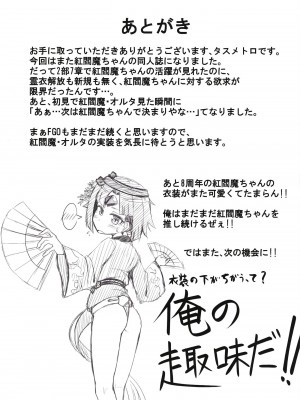 あとがき
お手に取っていただきありがとうございます、タスメトロです。
今回はまた紅閻魔ちゃんの同人誌になりました。
だって2部7章で紅閻魔ちゃんの活躍が見れたのに、
霊衣解放も新規も無く、紅閻魔ちゃんに対する欲求が
限界だったんです…。
あと、初見で紅閻魔・オルタ見た瞬間に
「あぁ…次は紅閻魔ちゃんで決まりやな…」てなりました。
まぁFGOもまだまだ続くと思いますので、
紅閻魔・オルタの実装を気長に待とうと思います。
あと8周年の紅閻魔ちゃんの
衣装がまた可愛くてたまらん!!
俺はまだまだ紅閻魔ちゃんを
推し続けるぜぇ!!
ではまた、次の機会に!!
衣装の下がちがうって?
俺の
趣味だ!!